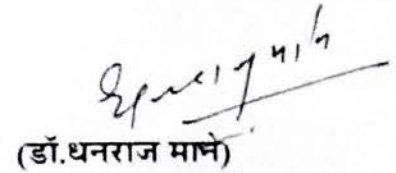 (डॉ.धनराज माने)